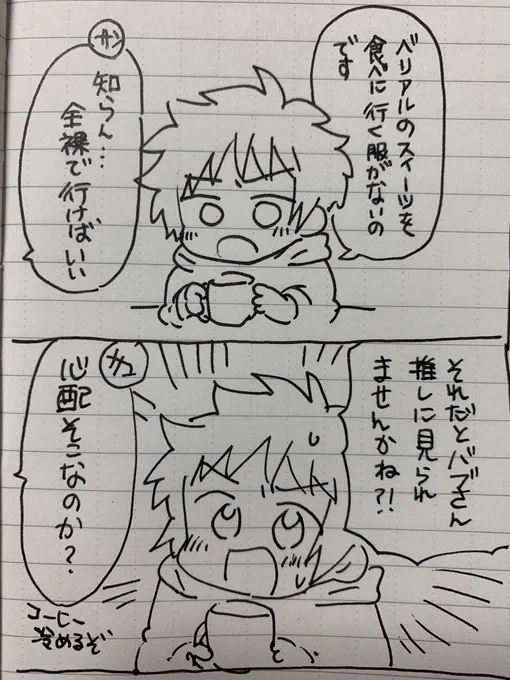 ベリアルのスイーツを
食べに行く服がないの
です
サン
知らん…
全裸で行けばいい
それだとバブさん
推しに見られ
ませんかね?!
サン
心配そこなのか?
コーヒー
冷めるぞ